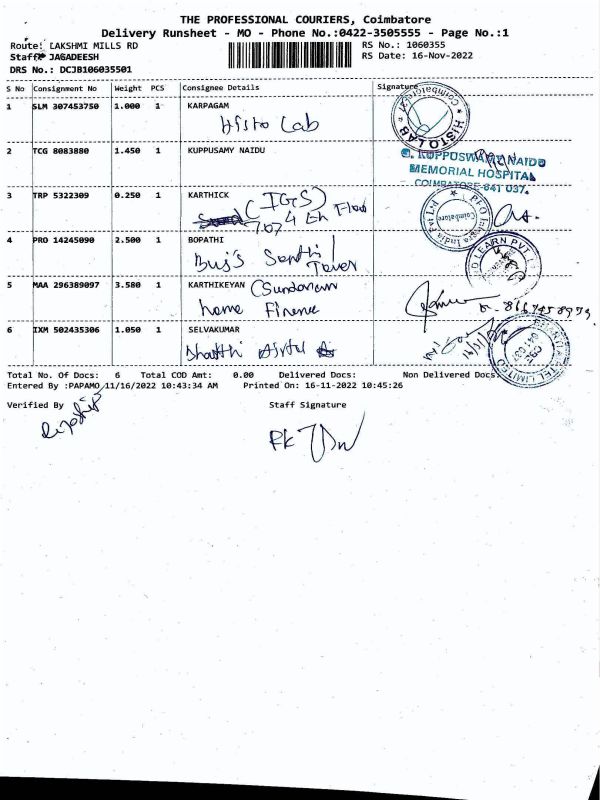 THE PROFESSIONAL COURIERS, Coimbatore
Delivery Runsheet - MO - Phone No.:0422-3505555 - Page No.:1
Route: LAKSHMI MILLS RD RS No.: 1060355
Staff: JAGADEESH RS Date: 16-Nov-2022
DRS No.: DCJB106035501
S No Consignment No Weight PCS Consignee Details Signature
1 SLM 307453750 1.000 1 KARPAGAM
Histo Lab
HISTO LAB
Coimbatore
2 TCG 8083880 1.450 1 KUPPUSAMY NAIDU
G. KUPPUSWAMY NAIDU
MEMORIAL HOSPITAL
COIMBATORE-641 037.
3 TRP 5322309 0.250 1 KARTHICK
(IGS)
707 4th Floor
Integra India Pvt Ltd
Coimbatore
4 PRO 14245090 2.500 1 BOPATHI
Santhi
Tower
LEARN PVT
5 MAA 296389097 3.580 1 KARTHIKEYAN (Sundaram
home Finance
6 IXM 502435306 1.050 1 SELVAKUMAR
Bharthi Airtel
LIMITED
Total No. Of Docs: 6 Total COD Amt: 0.00 Delivered Docs: Non Delivered Docs:
Entered By :PAPAMO 11/16/2022 10:43:34 AM Printed On: 16-11-2022 10:45:26
Verified By Staff Signature